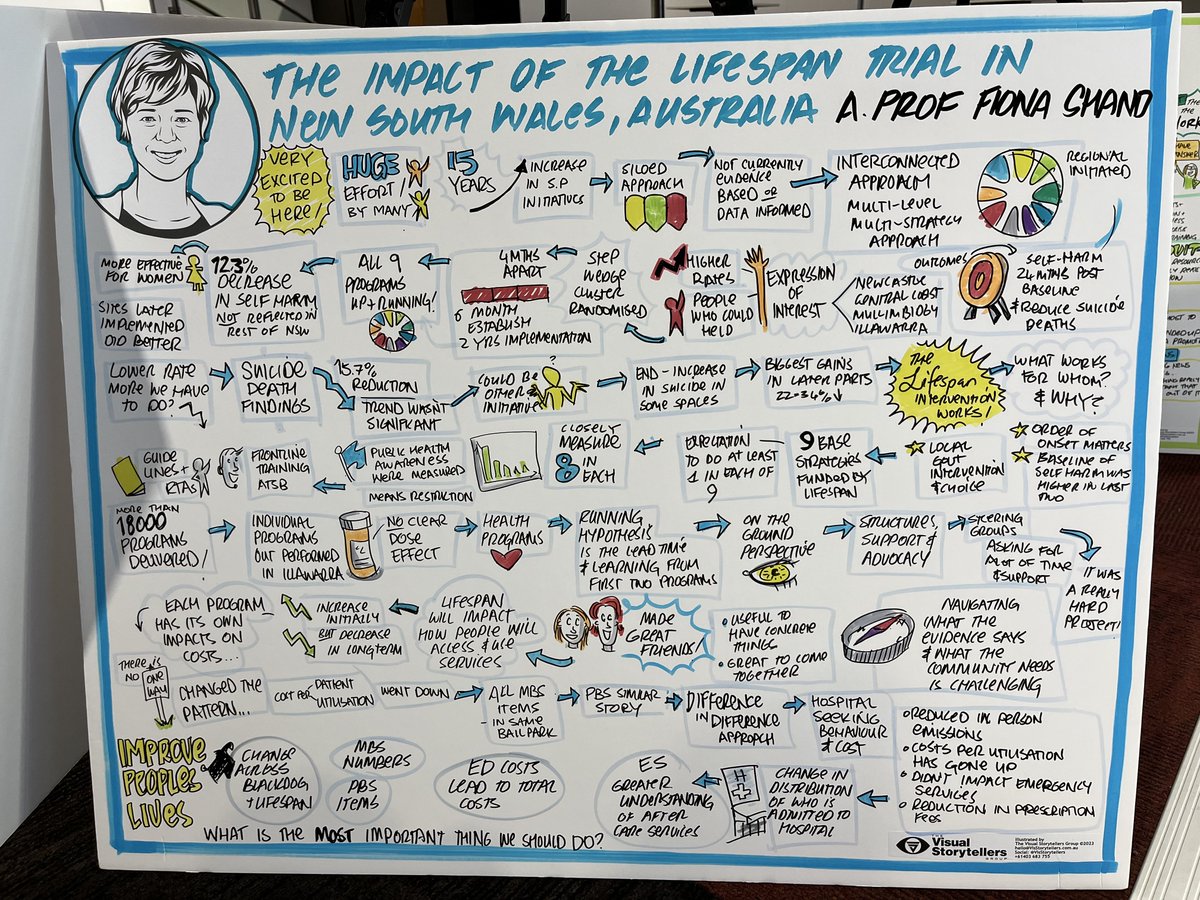 THE IMPACT OF THE LIFESPAN TRIAL IN
NEW SOUTH WALES, AUSTRALIA A. PROF FIONA SHAND
VERY
EXCITED
TO BE
HERE!
HUGE
EFFORT!
BY MANY
15
YEARS
INCREASE
IN S.P
INITIATIVES
SILOED
APPROACH
NOT CURRENTLY
EVIDENCE
BASED OR
DATA INFORMED
INTERCONNECTED
APPROACH
MULTI-LEVEL
MULTI-STRATEGY
APPROACH
REGIONAL
INITIATED
OUTCOMES
SELF-HARM
24 MTHS POST
BASELINE
& REDUCE SUICIDE
DEATHS
NEWCASTLE
CENTRAL COAST
MULLIMBIDBY
ILLAWARRA
EXPRESSION
OF
INTEREST
HIGHER
RATES
PEOPLE
WHO COULD
HELD
STEP
WEDGE
CLUSTER
RANDOMISED
4 MTHS
APART
6 MONTH
ESTABLISH
2 YRS IMPLEMENTATION
ALL 9
PROGRAMS
UP + RUNNING!
12.3%
DECREASE
IN SELF HARM
NOT REFLECTED IN
REST OF NSW
MORE EFFECTIVE
FOR WOMEN
SITES LATER
IMPLEMENTED
DID BETTER
LOWER RATE
MORE WE HAVE
TO DO?
SUICIDE
DEATH
FINDINGS
15.7%
REDUCTION
TREND WASN'T
SIGNIFICANT
COULD BE
OTHER
INITIATIVE
?
END - INCREASE
IN SUICIDE IN
SOME SPACES
BIGGEST GAINS
IN LATER PARTS
22-34%
THE
Lifespan
INTERVENTION
WORKS!
WHAT WORKS
FOR WHOM?
& WHY?
ORDER OF
ONSET MATTERS
BASELINE OF
SELF HARM WAS
HIGHER IN LAST
TWO
LOCAL
GOVT
INTERVENTION
& CHOICE
9 BASE
STRATEGIES
FUNDED BY
LIFESPAN
EXPECTATION
TO DO AT LEAST
1 IN EACH OF
9
CLOSELY
MEASURE
8 IN
EACH
PUBLIC HEALTH
AWARENESS
WERE MEASURED
MEANS RESTRICTION
FRONTLINE
TRAINING
ATSB
GUIDE
LINES +
RTAS
MORE THAN
18000
PROGRAMS
DELIVERED!
INDIVIDUAL
PROGRAMS
OUT PERFORMED
IN ILLAWARRA
NO CLEAR
DOSE
EFFECT
HEALTH
PROGRAMS
RUNNING
HYPOTHESIS
IS THE LEAD TIME
& LEARNING FROM
FIRST TWO PROGRAMS
ON THE
GROUND
PERSPECTIVE
STRUCTURES,
SUPPORT &
ADVOCACY
STEERING
GROUPS
ASKING FOR
A LOT OF TIME
& SUPPORT
IT WAS
A REALLY
HARD
PROJECT!
NAVIGATING
WHAT THE
EVIDENCE SAYS
& WHAT THE
COMMUNITY NEEDS
IS CHALLENGING
• USEFUL TO
HAVE CONCRETE
THINGS
• GREAT TO COME
TOGETHER
MADE
GREAT
FRIENDS!
LIFESPAN
WILL IMPACT
HOW PEOPLE WILL
ACCESS & USE
SERVICES
INCREASE
INITIALLY
BUT DECREASE
IN LONGTERM
EACH PROGRAM
HAS ITS OWN
IMPACTS ON
COSTS...
THERE IS
NO ONE
WAY
CHANGED THE
PATTERN...
COST PER PATIENT
UTILISATION
WENT DOWN
ALL MBS
ITEMS
- IN SAME
BALLPARK
PBS SIMILAR
STORY
DIFFERENCE
IN DIFFERENCE
APPROACH
HOSPITAL
SEEKING
BEHAVIOUR
& COST
• REDUCED IN PERSON
EMISSIONS
• COSTS PER UTILISATION
HAS GONE UP
• DIDN'T IMPACT EMERGENCY
SERVICES
• REDUCTION IN PRESCRIPTION
FEES
CHANGE IN
DISTRIBUTION
OF WHO IS
ADMITTED TO
HOSPITAL
H
ES
GREATER
UNDERSTANDING
OF AFTER
CARE SERVICES
ED COSTS
LEAD TO TOTAL
COSTS
MBS
NUMBERS
PBS
ITEMS
CHANGE
ACROSS
BLACKDOG
+ LIFESPAN
IMPROVE
PEOPLES
LIVES
WHAT IS THE MOST IMPORTANT THING WE SHOULD DO?
THE
Visual
Storytellers
GROUP
Illustrated by
The Visual Storytellers Group ©2023
hello@VisStorytellers.com.au
Social: @VisStorytellers
+61403 683 755